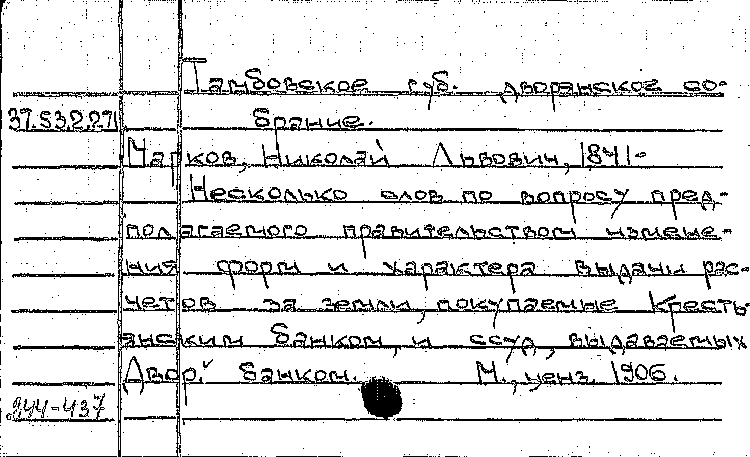 Тамбовское губ. дворянское со-
37.53.2.271 брание.
Марков, Николай Львович, 1841-
Несколько слов по вопросу пред-
полагаемого правительством измене-
ния форм и характера выдачи рас-
четов за земли, покупаемые Кресть
янским банком, и ссуд, выдаваемых
Двор. банком. М., ценз. 1906.
944-437